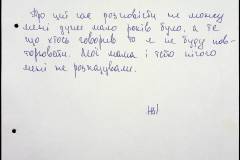 Про цей час розповісти не можу
мені дуже мало років було, а те
що хтось говорив то я не буду пов-
торювати. Мої мама і тато нічого
мені не розказували.